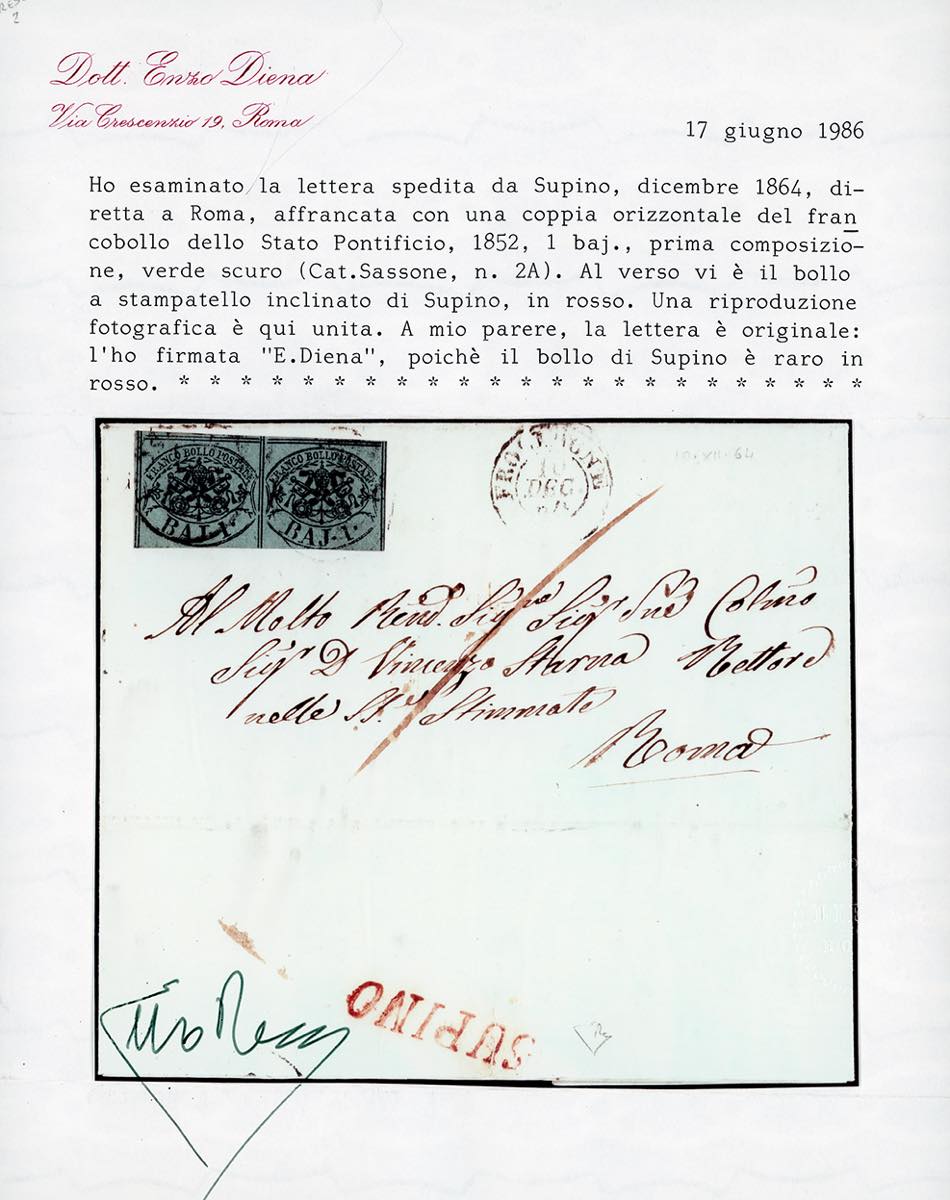 Dott. Enzo Diena
Via Crescenzio 19, Roma
17 giugno 1986
Ho esaminato la lettera spedita da Supino, dicembre 1864, di-
retta a Roma, affrancata con una coppia orizzontale del fran
cobollo dello Stato Pontificio, 1852, 1 baj., prima composizio-
ne, verde scuro (Cat.Sassone, n. 2A). Al verso vi è il bollo
a stampatello inclinato di Supino, in rosso. Una riproduzione
fotografica è qui unita. A mio parere, la lettera è originale:
l'ho firmata "E.Diena", poichè il bollo di Supino è raro in
rosso. * * * * * * * * * * * * * * * * * * * * * *
FRANCO BOLLO POSTALE
BAJ. 1.
FRANCO BOLLO POSTALE
BAJ. 1.
FROSINONE
DEC
10.XII.64
Al Molto Rend. Sigre Sigr
Sigr D Vincenzo Sterna Rettore
nelle SS. Stimmate
Roma
SUPINO